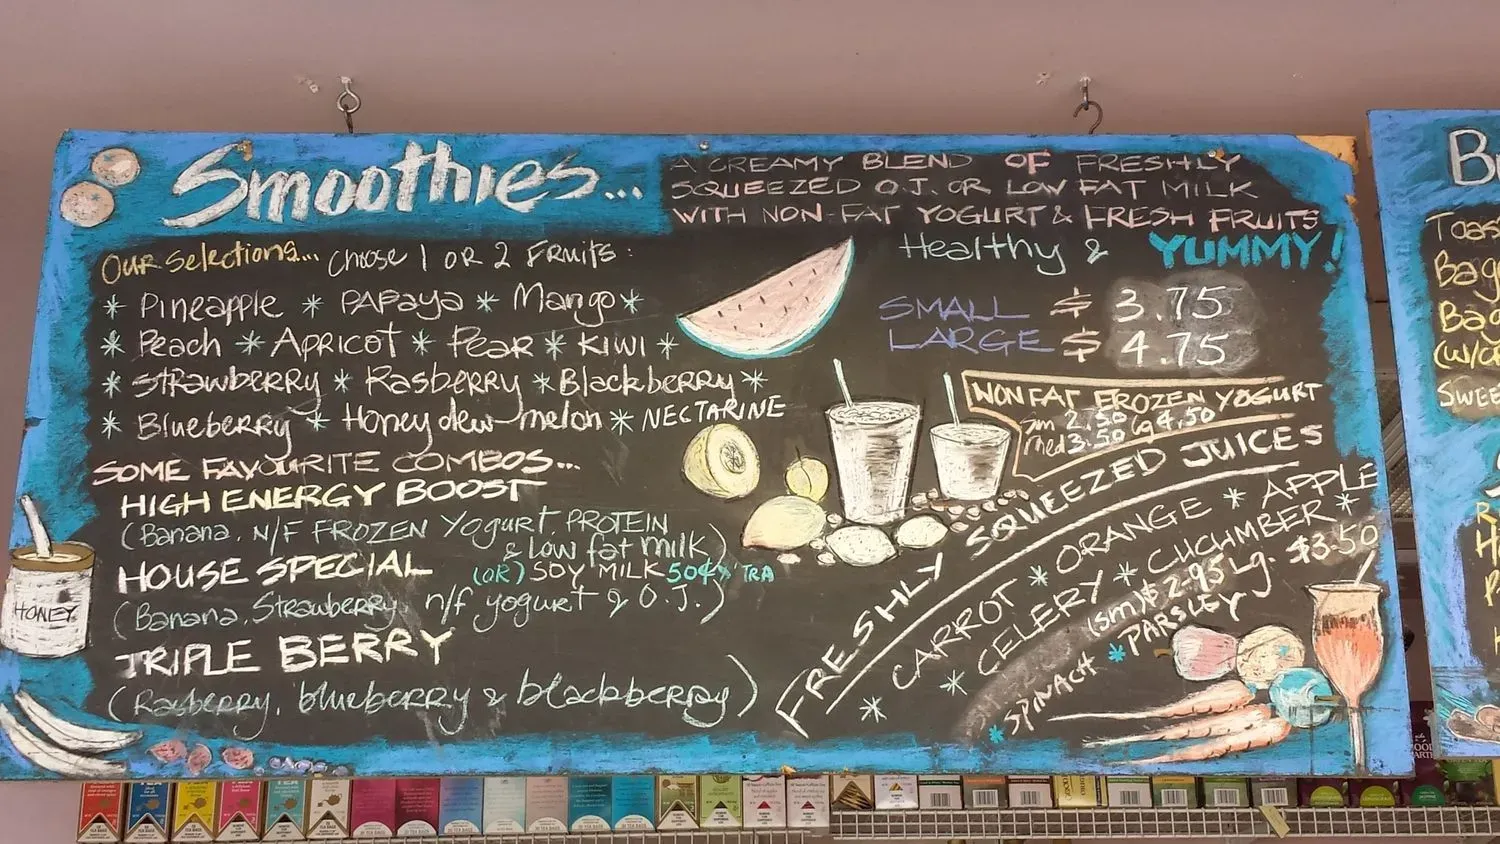 Smoothies...
A CREAMY BLEND OF FRESHLY
SQUEEZED O.J. OR LOW FAT MILK
WITH NON-FAT YOGURT & FRESH FRUITS
Healthy & YUMMY!
Our Selections... Choose 1 OR 2 FRUITS:
* Pineapple * PAPAya * Mango *
* Peach * APRICOT * Pear * KIWI *
* STRAWBERRY * RASBERRY * Blackberry *
* Blueberry * Honeydew-melon * NECTARINE
SMALL $ 3.75
LARGE $ 4.75
NON FAT FROZEN YOGURT
Sm 2.50
Med 3.50 Lg 4.50
SOME FAVOURITE COMBOS...
HIGH ENERGY BOOST
(Banana, N/F FROZEN Yogurt, PROTEIN
& Low fat milk)
(OR) SOY MILK 50¢ X'TRA
HOUSE SPECIAL
(Banana, Strawberry, n/f yogurt & O.J.)
TRIPLE BERRY
(Rasberry, blueberry & blackberry)
FRESHLY SQUEEZED JUICES
* CARROT * ORANGE * APPLE
* CELERY * CUCUMBER *
(sm) $2.95 Lg. $3.50
* SPINACH * PARSLEY
HONEY
Bag
Bag